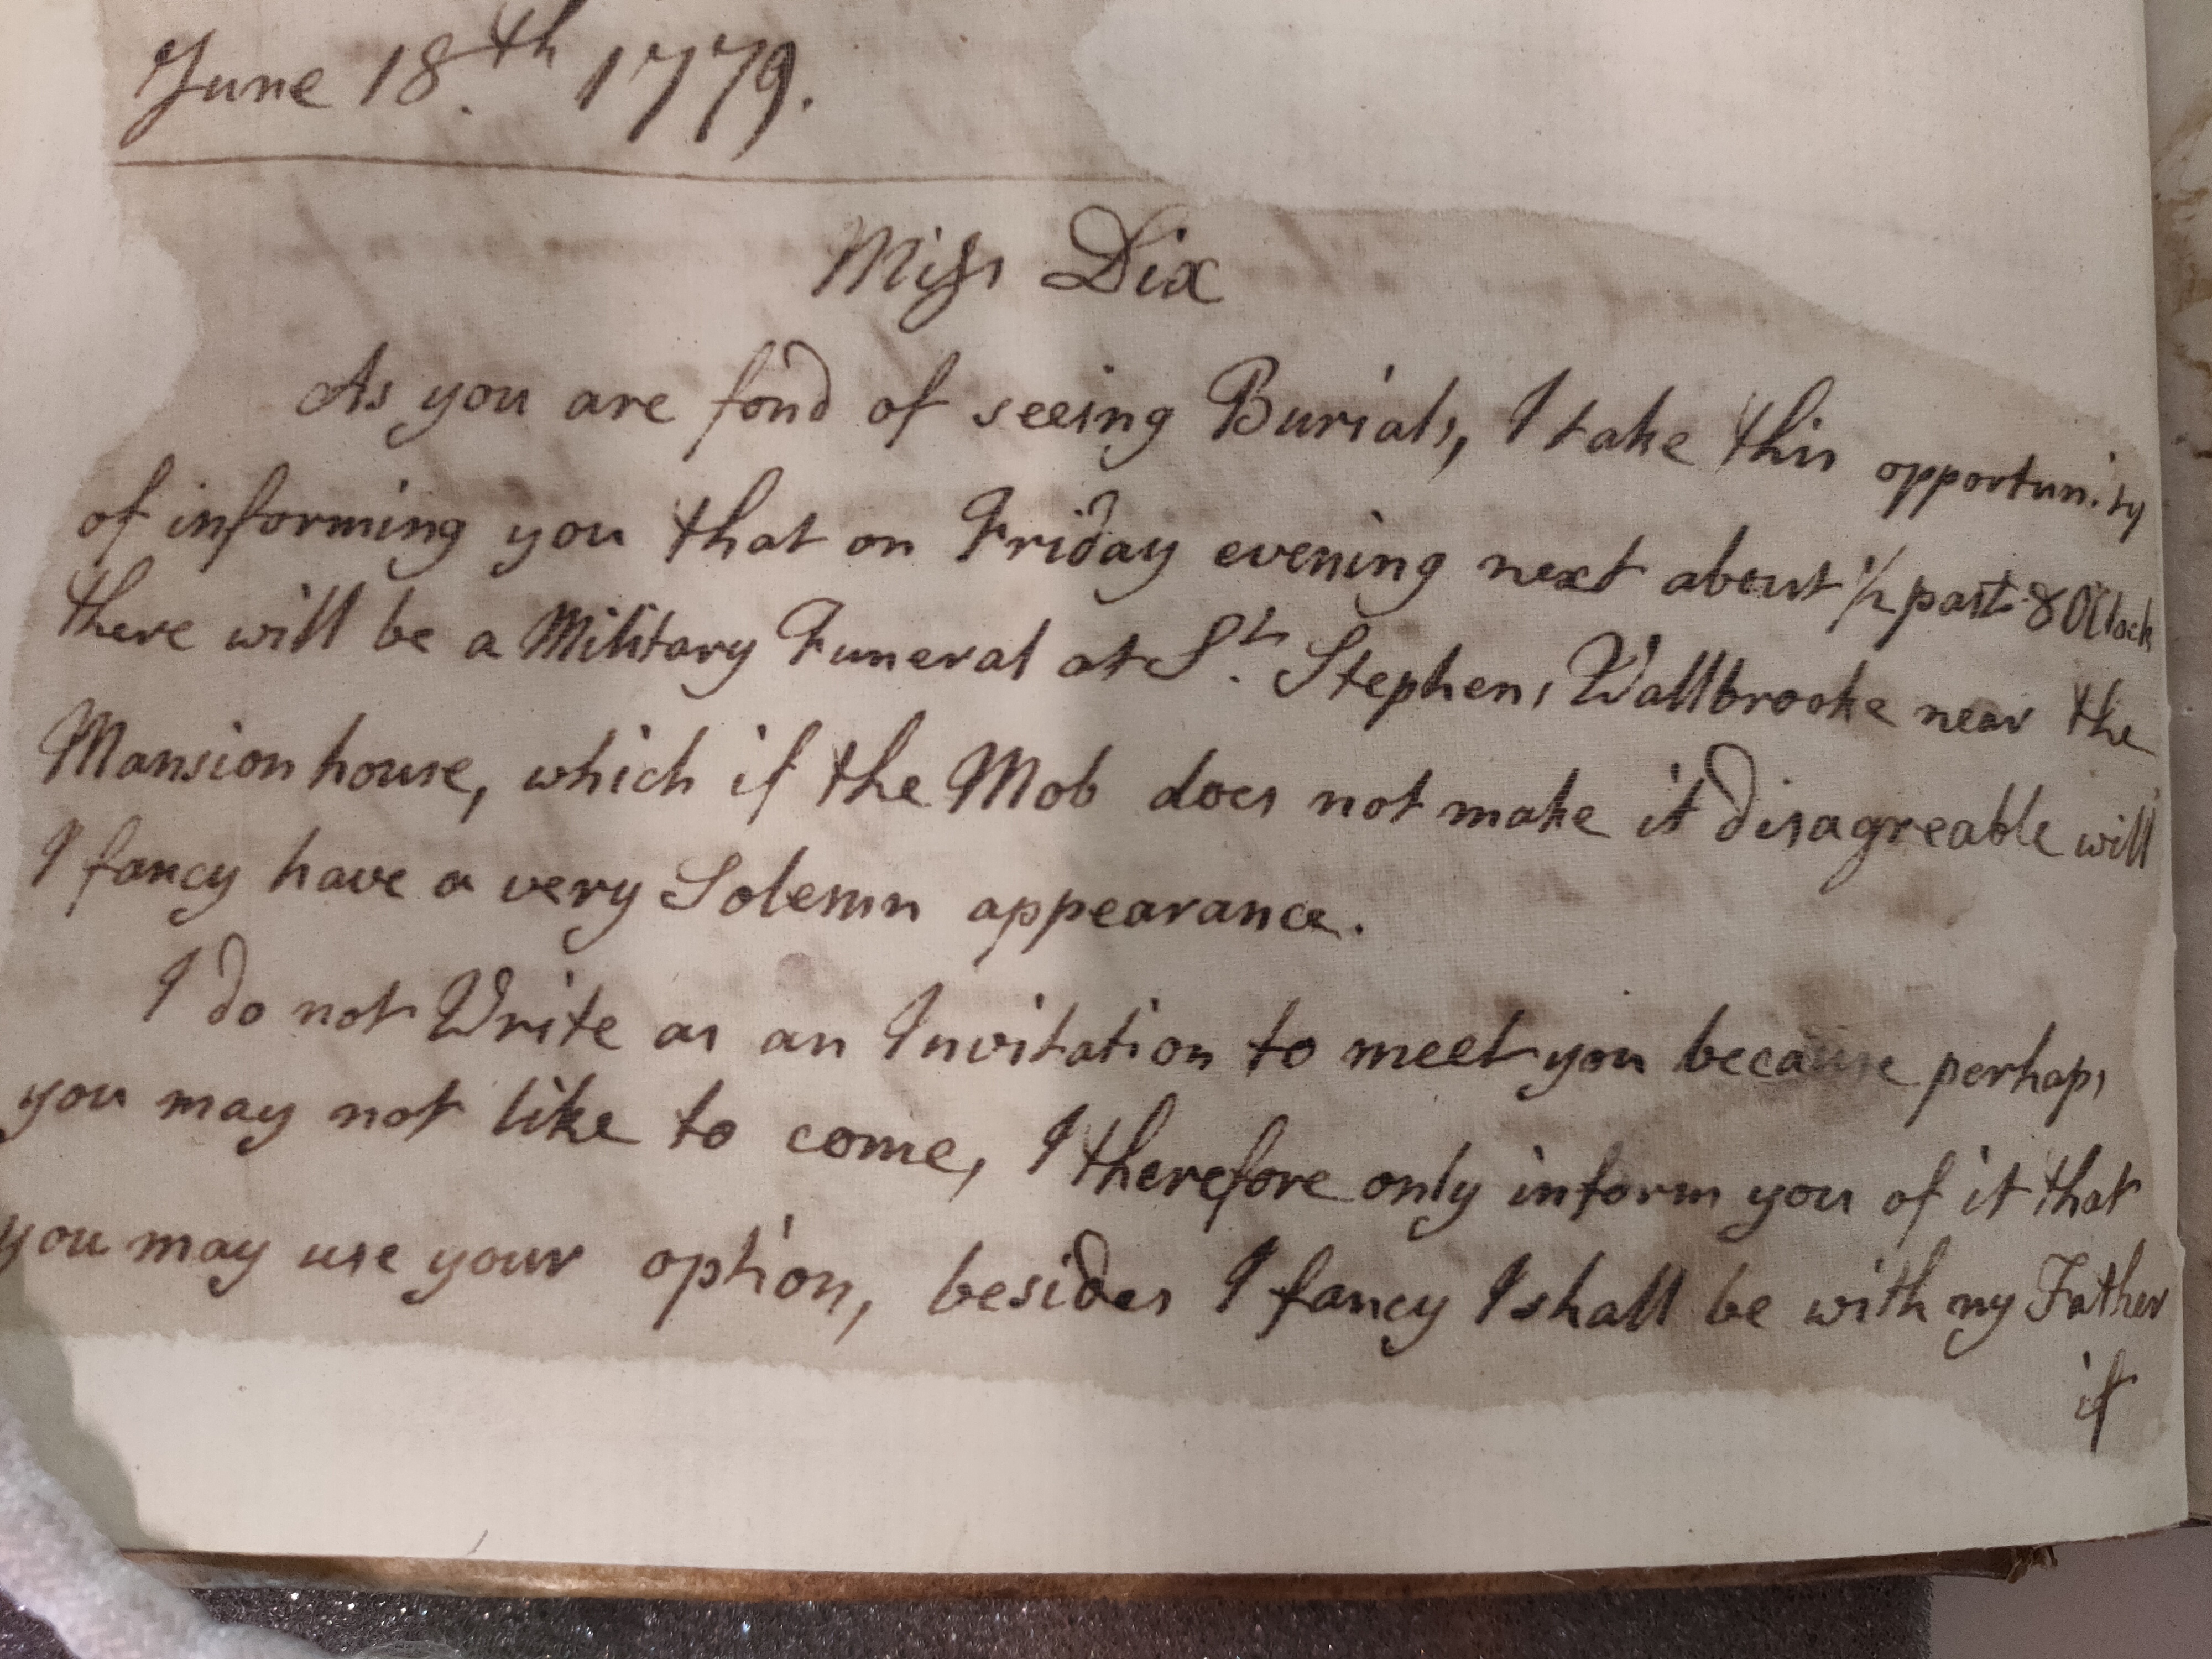 June 18.th 1779.
Miss Dix
As you are fond of seeing Burials, I take this opportunity
of informing you that on Friday evening next about 1/2 past 8 OClock
there will be a Military Funeral at St. Stephens Wallbrooke near the
Mansion house, which if the Mob does not make it disagreable will
I fancy have a very Solemn appearance.
I do not Write as an Invitation to meet you because perhaps
you may not like to come, I therefore only inform you of it that
you may use your option, besides I fancy I shall be with my Father
if